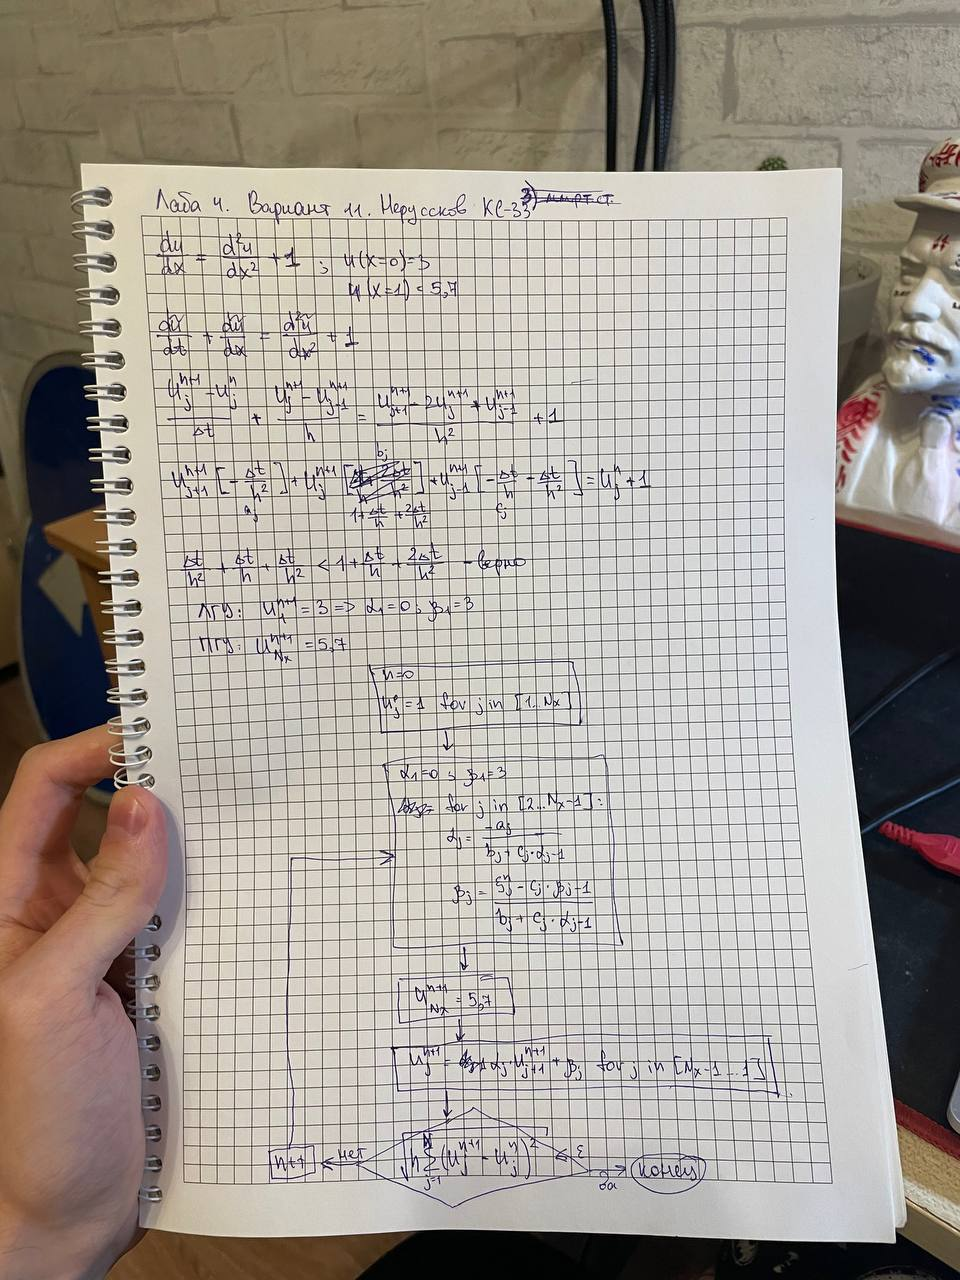 Лаба 4. Вариант 11. Неруссков КС-33
du/dx = d²u/dx² + 1 ; u(x=0)=3
u(x=1)=5,7
du/dt + du/dx = d²u/dx² + 1
(u_j^{n+1} - u_j^n)/Δt + (u_j^{n+1} - u_{j-1}^{n+1})/h = (u_{j+1}^{n+1} - 2u_j^{n+1} + u_{j-1}^{n+1})/h² + 1
b_j
u_{j+1}^{n+1} [-Δt/h²] + u_j^{n+1} [] + u_{j-1}^{n+1} [-Δt/h - Δt/h²] = u_j^n + 1
a_j 1 + Δt/h + 2Δt/h² c_j
Δt/h² + Δt/h + Δt/h² < 1 + Δt/h + 2Δt/h² - верно
ЛГУ: u_1^{n+1} = 3 => α_1=0; β_1=3
ПГУ: u_{Nx}^{n+1} = 5,7
n=0
u_j^0 = 1 for j in [1..Nx]
α_1=0; β_1=3
for j in [2...Nx-1]:
α_j = -a_j/(b_j + c_j·α_{j-1})
β_j = (ξ_j^n - c_j·β_{j-1})/(b_j + c_j·α_{j-1})
u_{Nx}^{n+1} = 5,7
u_j^{n+1} = α_j·u_{j+1}^{n+1} + β_j for j in [Nx-1...1]
n++ нет √(h Σ_{j=1}^{N} (u_j^{n+1} - u_j^n)²) ≤ ε да конец